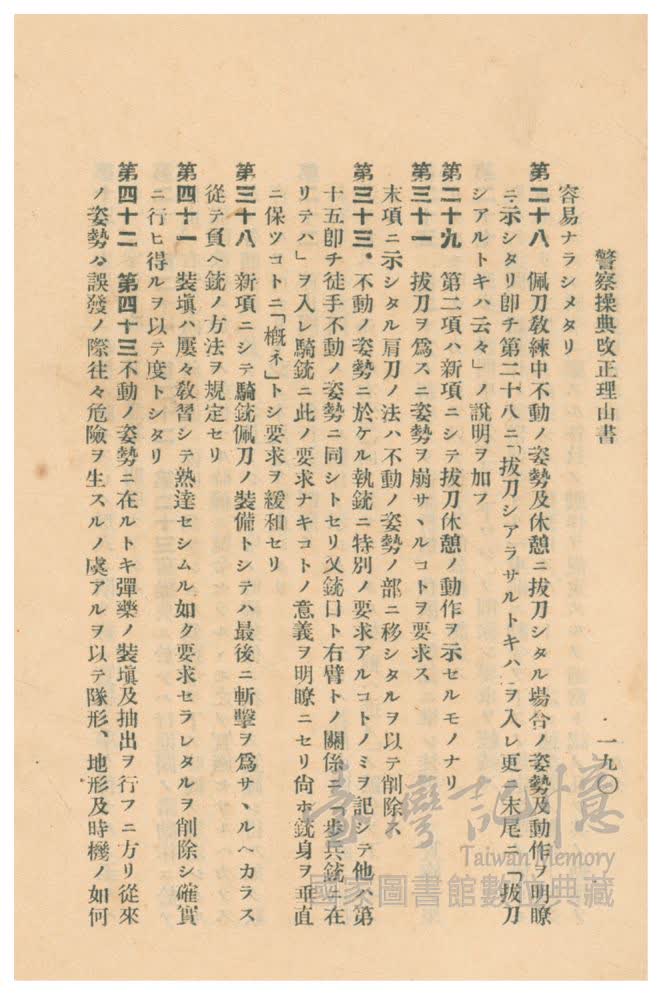 警察操典改正理由書
一九〇
容易ナラシメタリ
第二十八 佩刀教練中不動ノ姿勢及休憩ニ拔刀シタル場合ノ姿勢及動作ヲ明瞭
ニ示シタリ卽チ第二十八ニ「拔刀シアラサルトキハ」ヲ入レ更ニ末尾ニ「拔刀
シアルトキハ云々」ノ說明ヲ加フ
第二十九 第二項ハ新項ニシテ拔刀休憩ノ動作ヲ示セルモノナリ
第三十一 拔刀ヲ爲スニ姿勢ヲ崩サヽルコトヲ要求ス
末項ニ示シタル肩刀ノ法ハ不動ノ姿勢ノ部ニ移シタルヲ以テ削除ス
第三十三、不動ノ姿勢ニ於ケル執銃ニ特別ノ要求アルコトノミヲ記シテ他ハ第
十五卽チ徒手不動ノ姿勢ニ同シトセリ又銃口ト右臂トノ關係ニ「步兵銃ニ在
リテハ」ヲ入レ騎銃ニ此ノ要求ナキコトノ意義ヲ明瞭ニセリ尙ホ銃身ヲ垂直
ニ保ツコトニ「槪ネ」トシ要求ヲ緩和セリ
第三十八 新項ニシテ騎銃佩刀ノ裝備トシテハ最後ニ斬擊ヲ爲サヽルヘカラス
從テ負ヘ銃ノ方法ヲ規定セリ
第四十一 裝塡ハ屢々敎習シテ熟達セシムル如ク要求セラレタルヲ削除シ確實
ニ行ヒ得ルヲ以テ度トシタリ
第四十二 第四十三不動ノ姿勢ニ在ルトキ彈藥ノ裝塡及抽出ヲ行フニ方リ從來
ノ姿勢ハ誤發ノ際往々危險ヲ生スルノ虞アルヲ以テ隊形、地形及時機ノ如何
臺灣記憶
Taiwan Memory
國家圖書館數位典藏